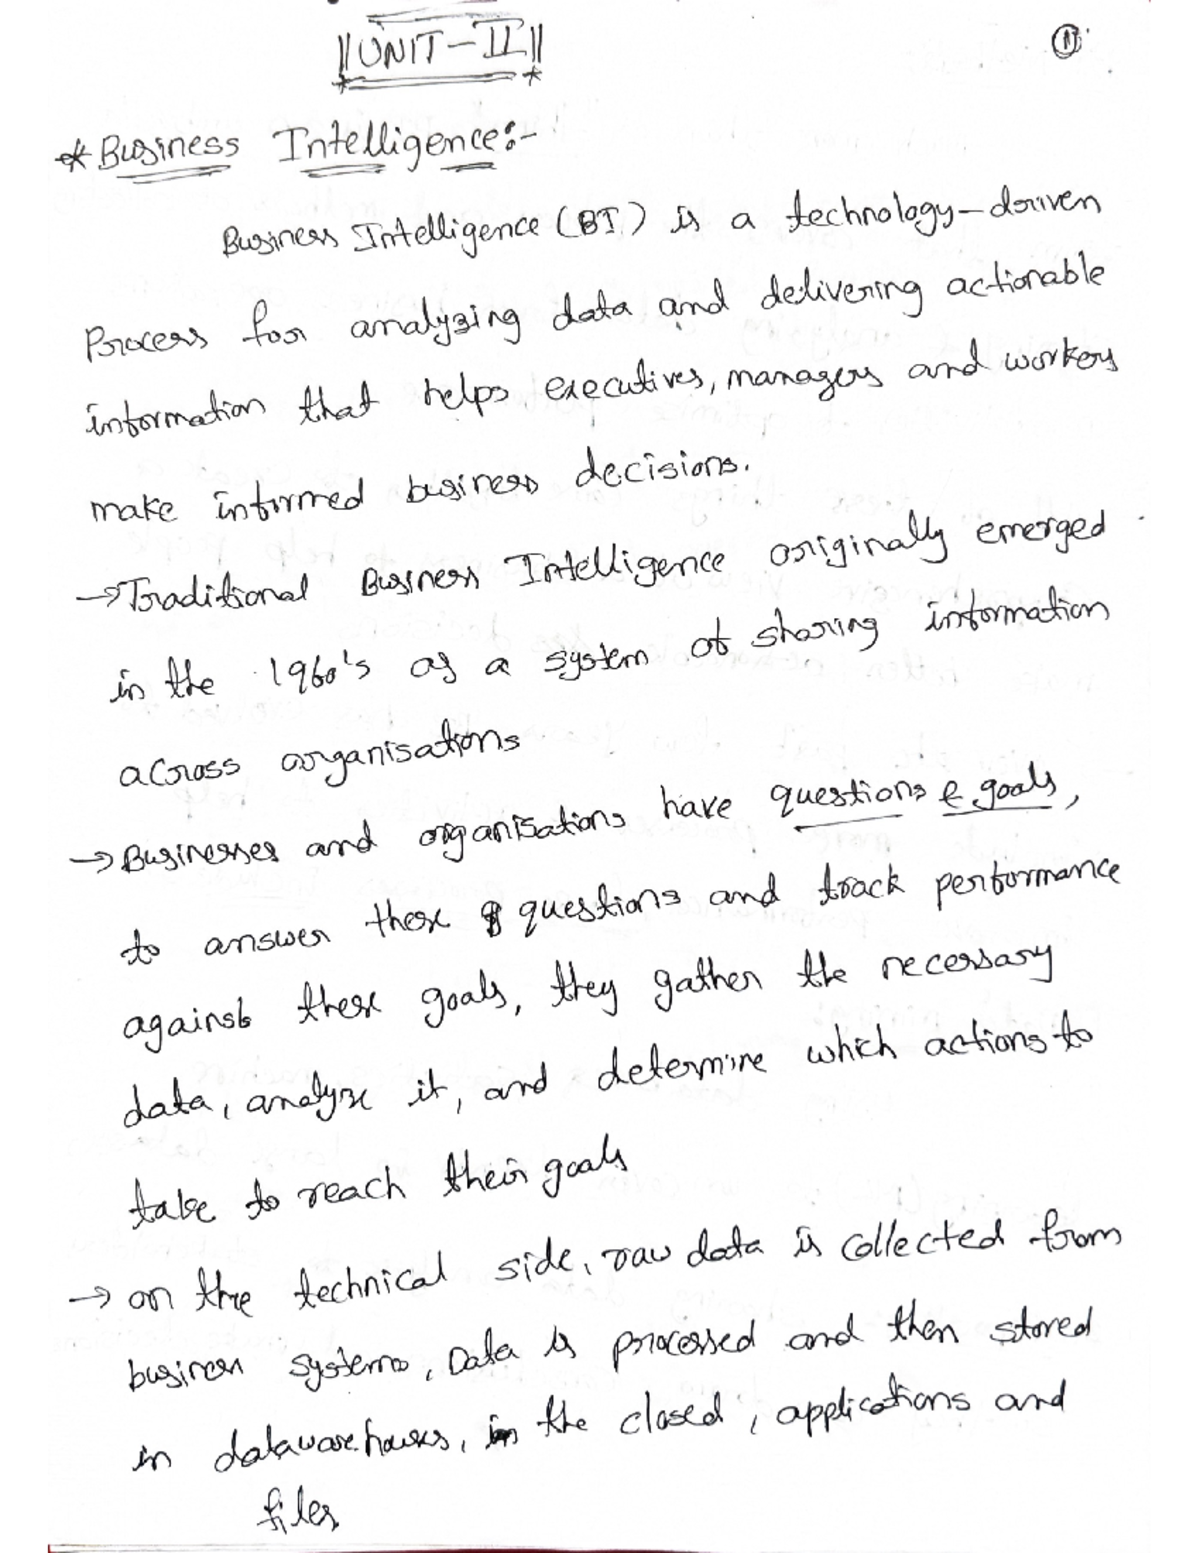 ||UNIT-II||
①
* Business Intelligence:-
Business Intelligence (BI) is a technology-driven
Process for analyzing data and delivering actionable
information that helps executives, managers and workers
make informed business decisions.
→ Traditional Business Intelligence originally emerged
in the 1960's as a system of sharing information
across organisations
→ Businesses and organisations have questions & goals,
to answer these questions and track performance
against these goals, they gather the necessary
data, analyze it, and determine which actions to
take to reach their goals
→ on the technical side, raw data is collected from
business systems, Data is processed and then stored
in datawarehouses, in the closed, applications and
files